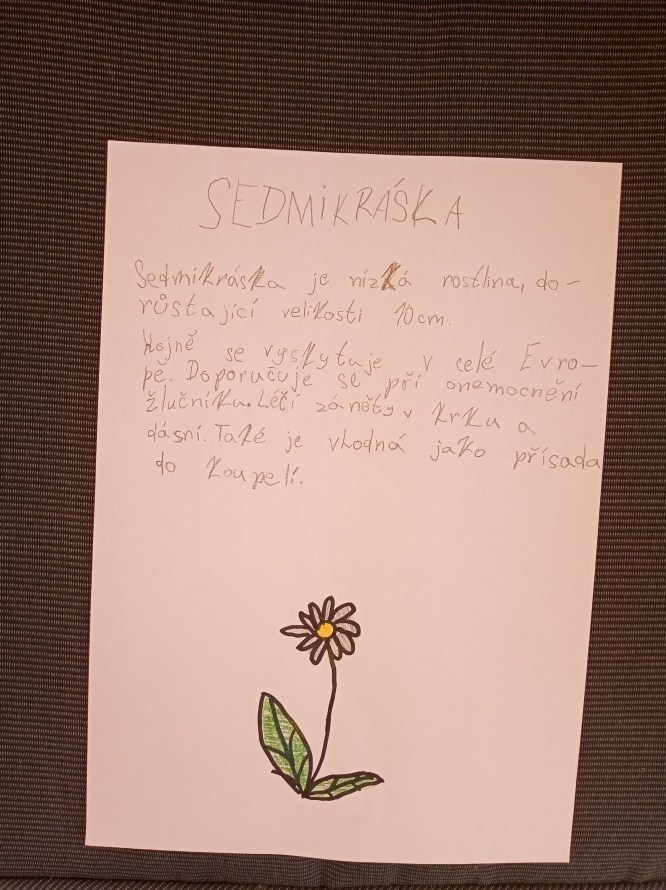 SEDMIKRÁSKA
Sedmikráska je nízká rostlina, do-
růstající velikosti 10cm.
Hojně se vyskytuje v celé Evro-
pě. Doporučuje se při onemocnění
žlučníku. Léčí záněty v krku a
dásní. Také je vhodná jako přísada
do koupelí.